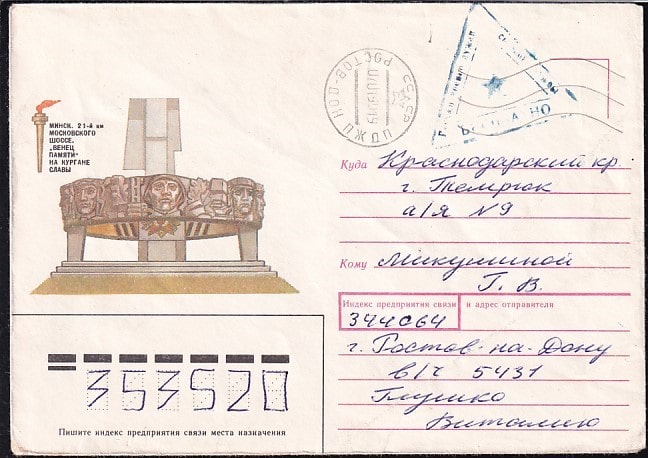 МИНСК. 21-й км
МОСКОВСКОГО
ШОССЕ.
„ВЕНЕЦ
ПАМЯТИ“
НА КУРГАНЕ
СЛАВЫ
РОСТОВ-ДОН
СССР
Куда Краснодарский кр.
г. Темрюк
а/я №9
Кому Микушиной
Г. В.
Индекс предприятия связи и адрес отправителя
344064
г. Ростов-на-Дону
в/ч 5431
Глушко
Виталию
353520
Пишите индекс предприятия связи места назначения